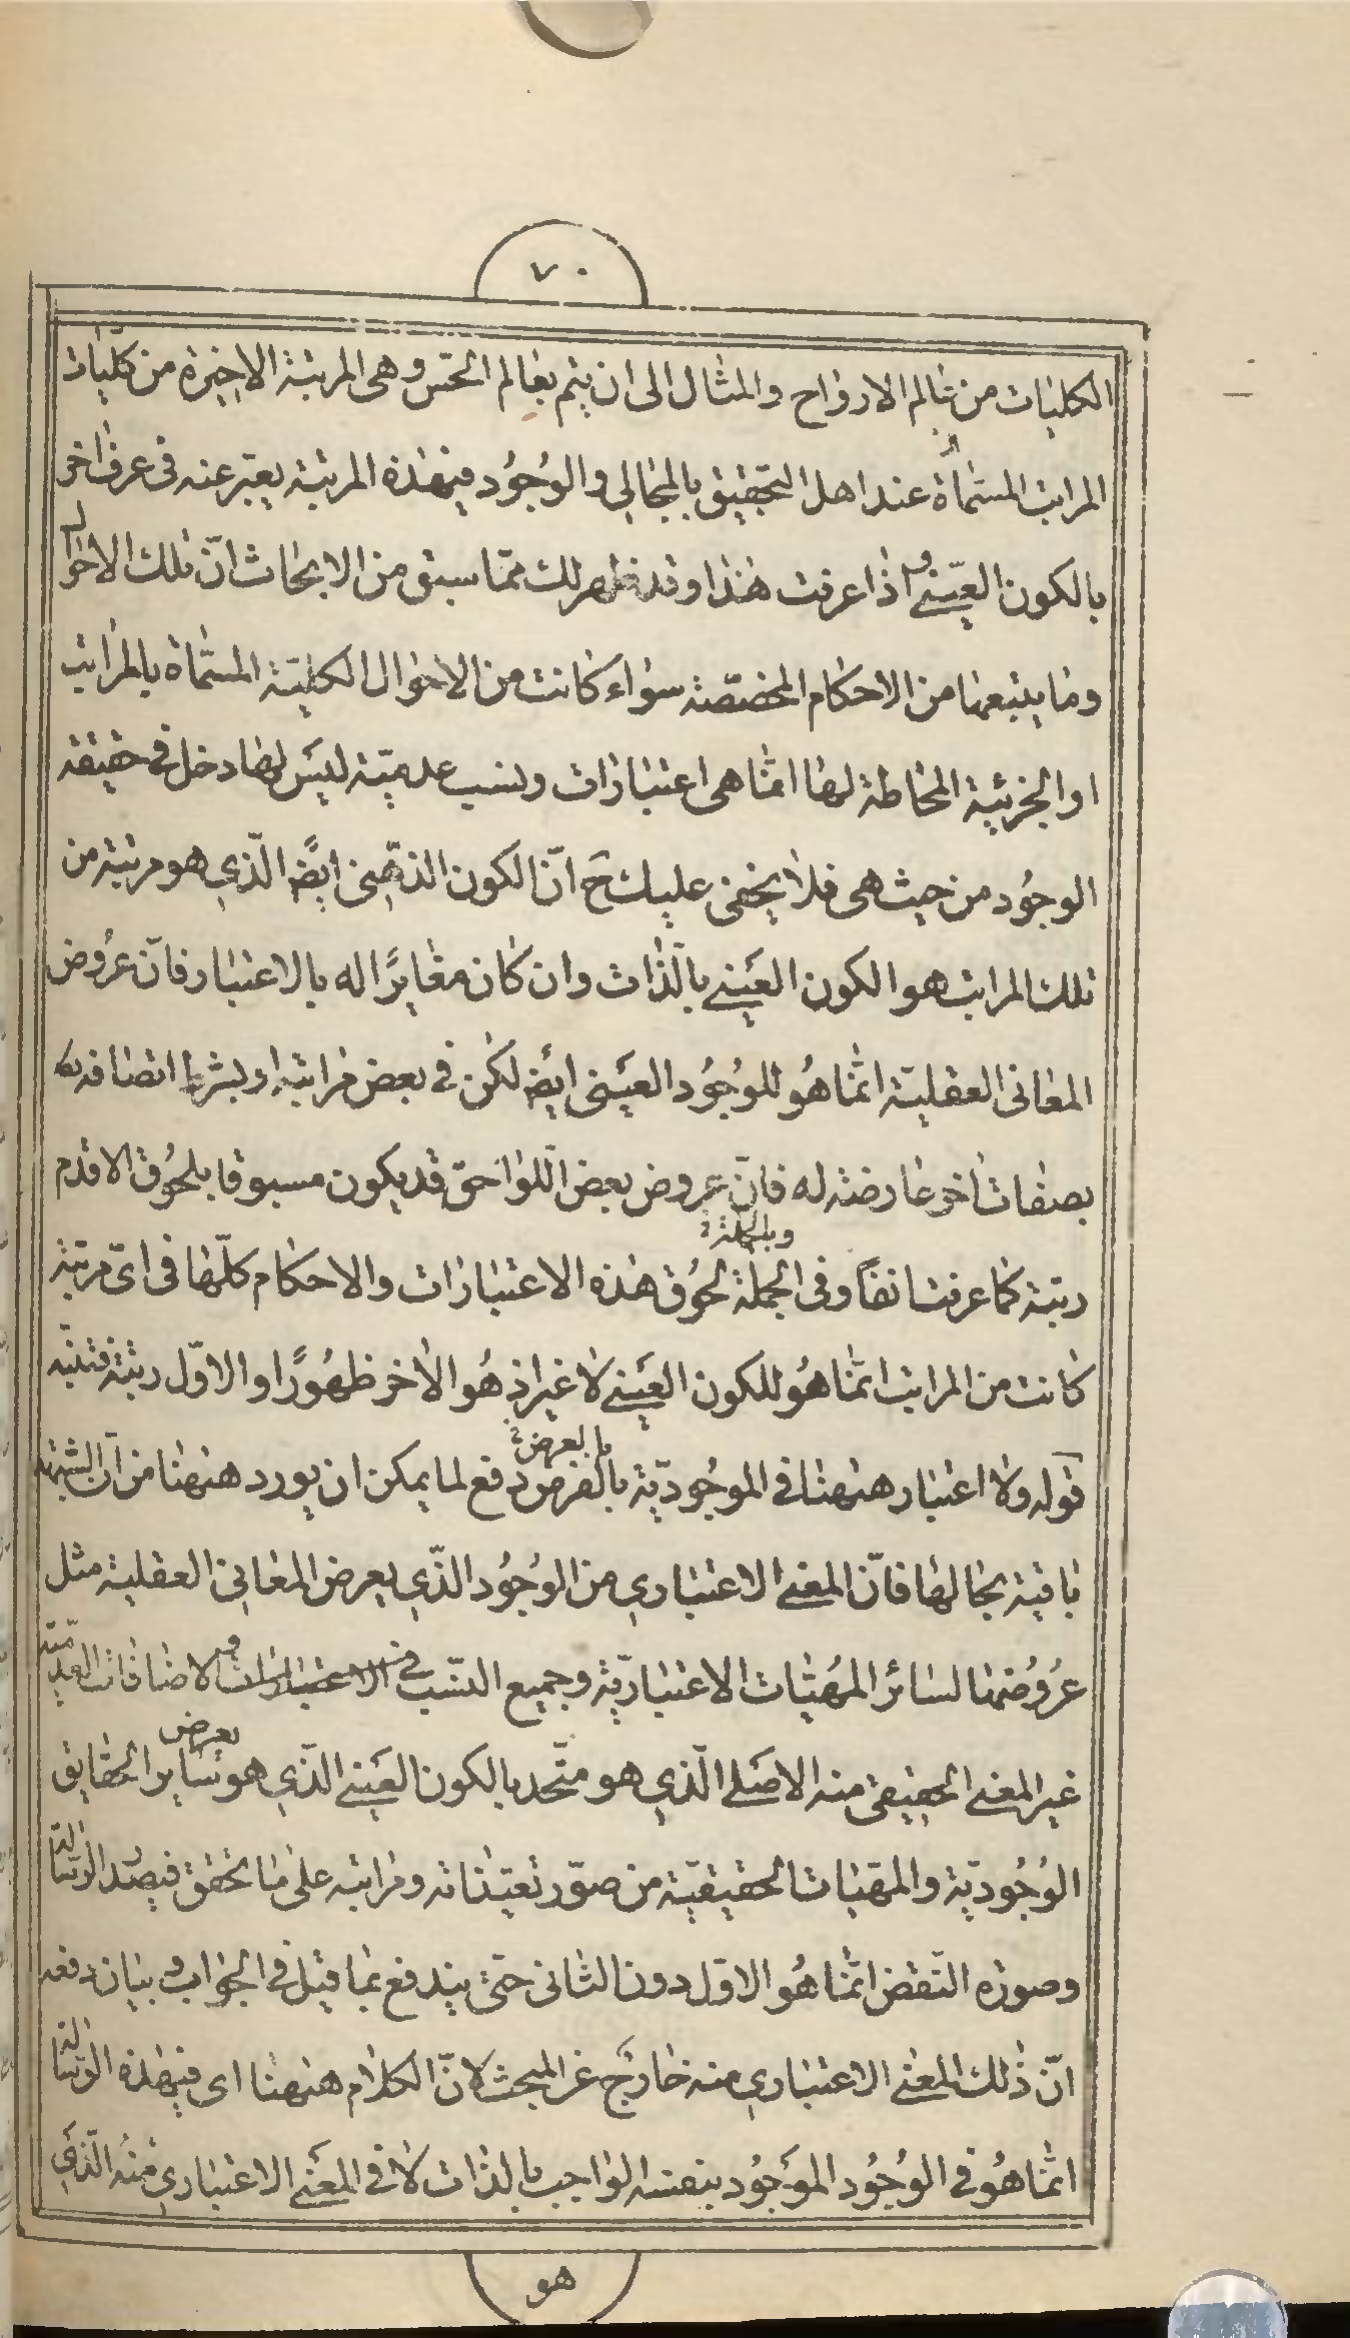 ٧٠
الكليات من عالم الارواح والمثال الى ان يتم بعالم الحس وهى المرتبة الاخيرة من كليّات
المراتب المسمّاة عند اهل التحقيق بالمجالي والوجُود فيهذه المرتبة يعبّر عنه فى عرف اخر
بالكون العينے و اذا عرفت هذا وقد ظهر لك ممّا سبق من الابحاث انّ تلك الاحوال
وما يتبعها من الاحكام المخصّصة سواء كانت من الاحوال الكليّة المسمّاة بالمراتب
او الجزئية المحاطة لها انّما هى اعتبارات ونسب عدميّة ليس لها دخل فے حقيقة
الوجُود من حيث هى فلا يخفى عليك حَ انّ الكون الذهنى ايضً الّذي هو مرتبة من
تلك المراتب هو الكون العينے بالذّات وان كان مغايرًا له بالاعتبار فانّ عرُوض
المعانى العقليّة انّما هُو للوجُود العينى ايضً لكن فے بعض مراتبه او بشرط اتصافه
بصفات اخر عارضة له فانّ عروض بعض اللواحق قد يكون مسبوقا بلحُوق الاقدم
وبالجملة
رتبة كما عرفت انفاً وفى الجملة لحُوق هذه الاعتبارات والاحكام كلّها فى اىّ مرتبة
كانت من المراتب انّما هُو للكون العينے لا غير اذ هُو الاخر ظهُورًا والاوّل رتبة فتنبّه
بالعرض
قوله ولا اعتبار ههنا فے الموجُوديّة بالفرض دفع لما يمكن ان يورد ههنا من انّ الشبهة
باقية بحالها فانّ المعنے الاعتباري من الوجُود الّذي يعرض المعاني العقلية مثل
عرُوضها لسائر المهيّات الاعتباريّة وجميع النسب و الاضافات العدميّة
يعرض
غير المعنے الحقيقى منه الاصَلے الّذي هو متّحد بالكون العينے الّذي هو سائر الحقايق
الوجُوديّة والمهيّات الحقيقيّة من صور تعيّناته ومراتبه على ما تحقق فيصدر الرسالة
وصورة النّقض انّما هُو الاوّل دون الثانى حتّى يندفع بما قيل فے الجواب و بيان دفعه
انّ ذلك المعنے الاعتباري منه خارج عن المبحث لانّ الكلام ههنا اى فيهذه الرّسالة
انّما هُو فى الوجُود الموجُود بنفسه الواجب بالذات لا فے المعنے الاعتباري منه الّذي
هو